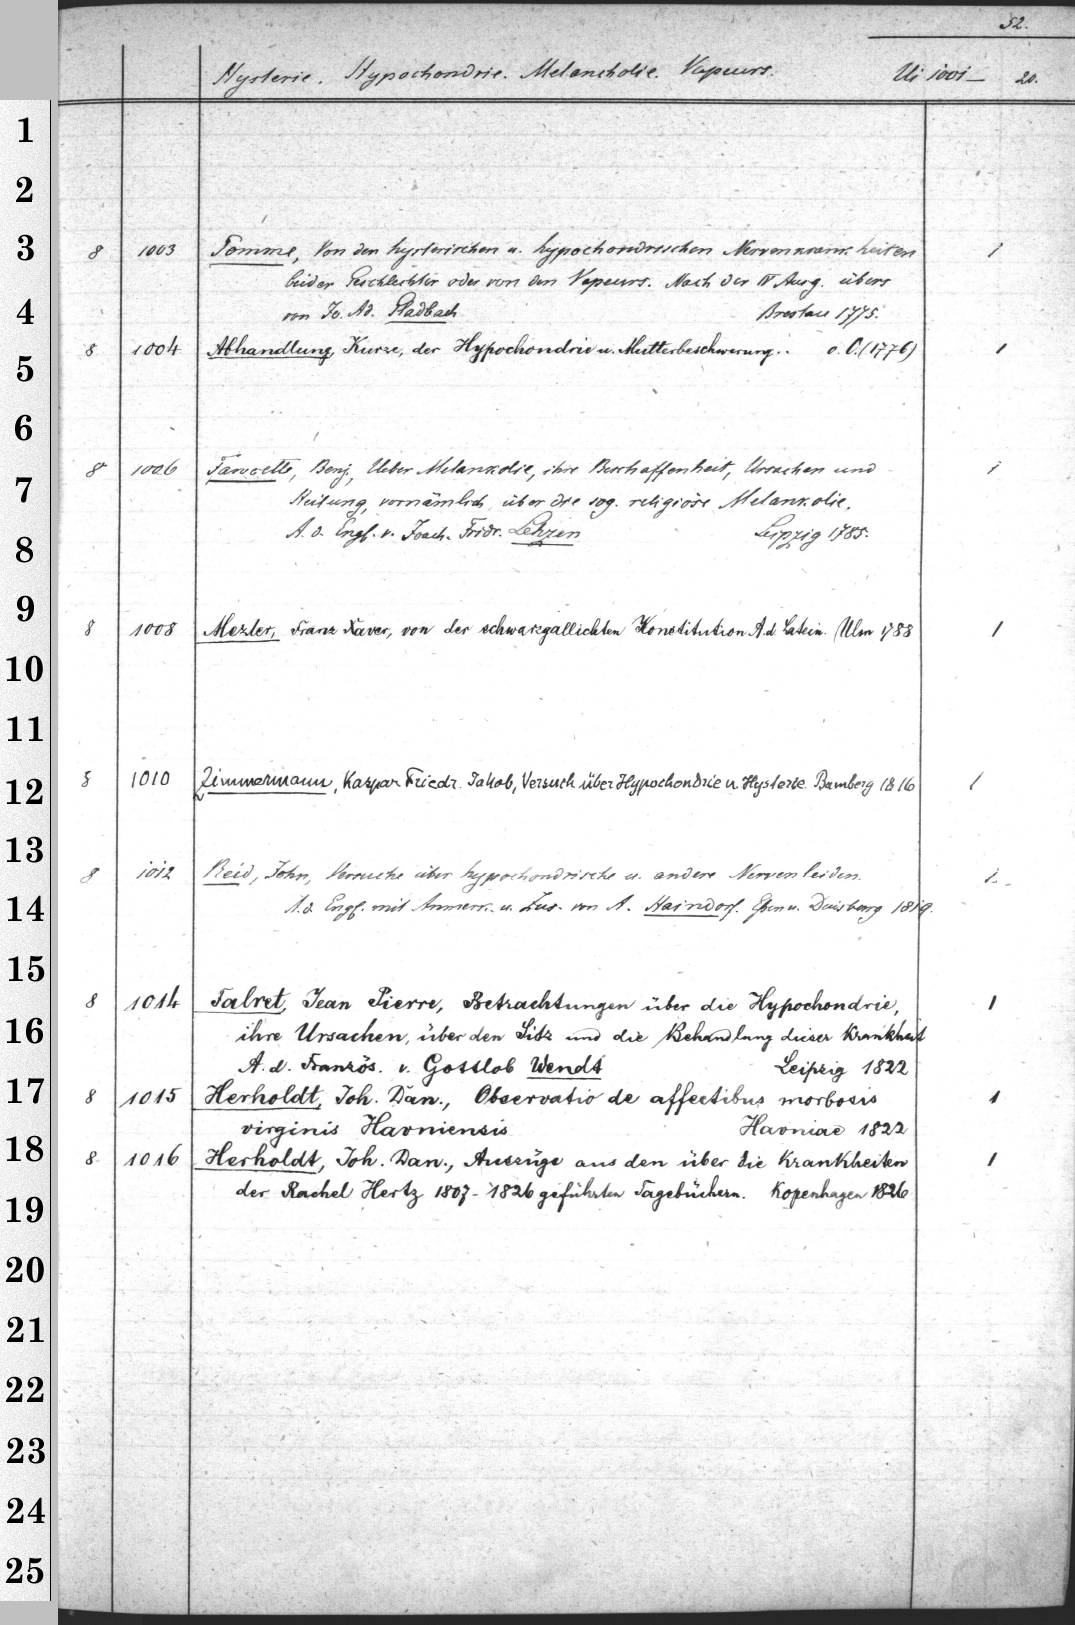 52.
Hysterie. Hypochondrie. Melancholie. Vapeurs. Ui 1001— 20.
1
2
3
8 1003 Pomme, Von den hysterischen u. hypochondrischen Nervenkrankheiten 1
beider Geschlechter oder von den Vapeurs. Nach der IV Ausg. übers
4
von Jo. Ad. Gladbach Breslau 1775.
8 1004 Abhandlung, Kurze, der Hypochondrie u. Mutterbeschwerung.. o. O. (1776) 1
5
6
7
8 1006 Fawcette, Benj., Ueber Melankolie, ihre Beschaffenheit, Ursachen und 1
Heilung, vornämlich über die sog. religiöse Melankolie.
8
A. d. Engl. v. Joach. Fridr. Lehzen Leipzig 1785.
9
8 1008 Mezler, Franz Xaver, von der schwarzgallichten Konstitution A. d. Latein. Ulm 1788 1
10
11
12
8 1010 Zimmermann, Kaspar Friedr. Jakob, Versuch über Hypochondrie u. Hysterie. Bamberg 1816 1
13
8 1012 Reid, John, Versuche über hypochondrische u. andere Nervenleiden. 1
14
A. d. Engl. mit Anmerk. u. Zus. von A. Haindorf. Essen u. Duisburg 1819.
15
8 1014 Falret, Jean Pierre, Betrachtungen über die Hypochondrie, 1
16
ihre Ursachen, über den Sitz und die Behandlung dieser Krankheit
A. d. Französ. v. Gottlob Wendt Leipzig 1822
17
8 1015 Herholdt, Joh. Dan., Observatio de affectibus morbosis 1
virginis Havniensis Havniae 1822
18
8 1016 Herholdt, Joh. Dan., Auszüge aus den über die Krankheiten 1
der Rachel Hertz 1807-1826 geführten Tagebüchern. Kopenhagen 1826
19
20
21
22
23
24
25